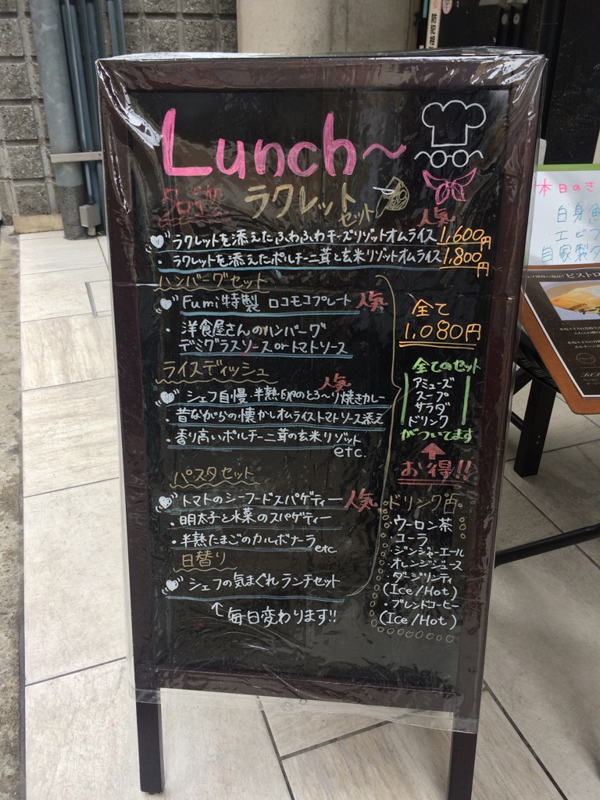 Lunch~
ラクレット
セット
人気
ラクレットを添えたふわふわチーズリゾットオムライス 1,600円
・ラクレットを添えたポルチーニ茸と玄米リゾットオムライス 1,800円
ハンバーグセット
Fumi特製 ロコモコプレート 人気
・洋食屋さんのハンバーグ
デミグラスソースorトマトソース
ライスディッシュ
人気
シェフ自慢・半熟卵のとろ〜り焼きカレー
・昔ながらの懐かしオムライストマトソース添え
・香り高いポルチーニ茸の玄米リゾット
etc.
パスタセット
トマトのシーフードスパゲティー 人気
・明太子と水菜のスパゲティー
・半熟たまごのカルボナーラ etc
日替り
シェフの気まぐれランチセット
毎日変わります!!
全て
1,080円
全てのセット
アミューズ
スープ
サラダ
ドリンク
がついてます
お得!!
ドリンク
ウーロン茶
・コーラ
ジンジャーエール
オレンジジュース
ダージリンティ
(Ice/Hot)
・ブレンドコーヒー
(Ice/Hot)
本日の
自家製